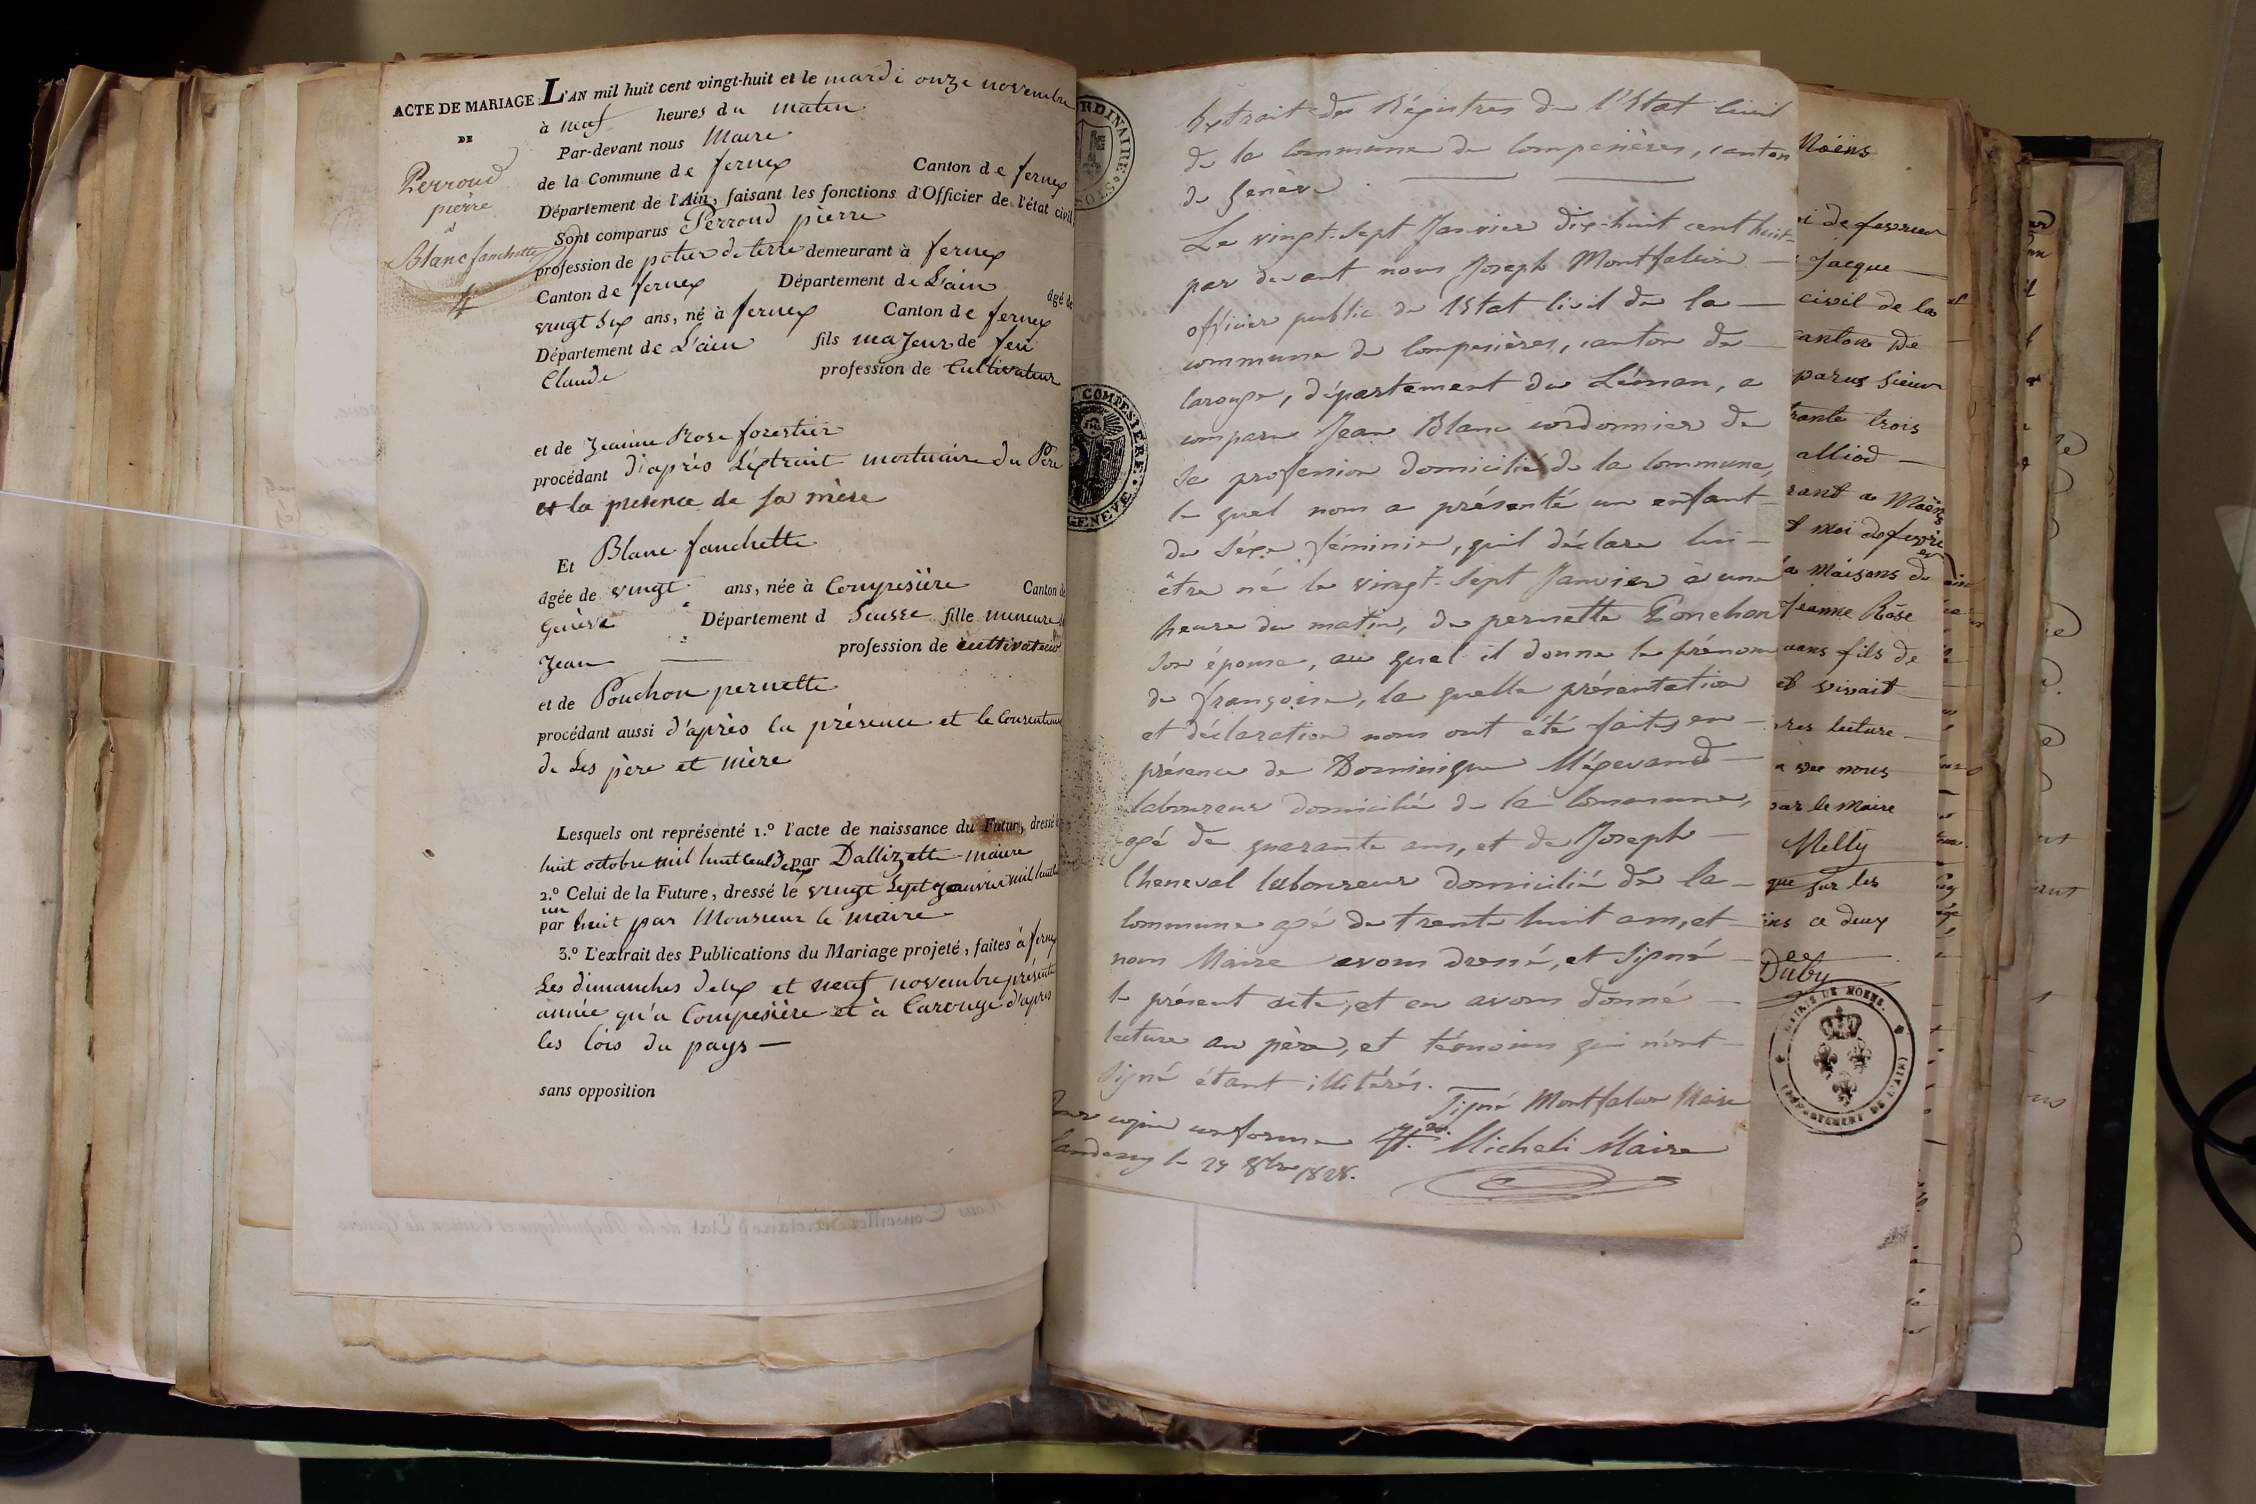 ACTE DE MARIAGE
DE
Perroud
pierre
à
Blanc fanchette
L'AN mil huit cent vingt-huit et le mardi onze novembre
à neuf heures du matin
Par-devant nous Maire
de la Commune de fernex Canton de fernex
Département de l'Ain, faisant les fonctions d'Officier de l'état civil
Sont comparus Perroud pierre
profession de potier de terre demeurant à fernex
Canton de fernex Département de L'ain âgé de
vingt six ans, né à fernex Canton de fernex
Département de L'ain fils majeur de feu
Claude profession de Cultivateur
et de Jeanne Rose forestier
procédant d'après L'extrait mortuaire du Père
et la presence de sa mère
Et Blanc fanchette
âgée de vingt ans, née à Compesière Canton de
Genève Département d Suisse fille mineure de
Jean profession de cultivateur
et de Pouchon pernette
procédant aussi d'après la présence et le Consentement
de Ses père et mère
Lesquels ont représenté 1.º l'acte de naissance du Futur, dressé
huit octobre mil huit cent deux par Dallizette maire
2.º Celui de la Future, dressé le vingt Sept janvier mil huit
par huit par Monsieur le maire
3.º L'extrait des Publications du Mariage projeté, faites à fernex
Les dimanches deux et neuf novembre présente
année qu'a Compesière et à Carouge d'apres
les lois du pays —
sans opposition
RDINAIRE
COMPESIERE
GENEVE
Extrait des Régistres de l'Etat Civil
de la Commune de Compesières, canton
de Genève.
Le vingt-Sept Janvier dix-huit cent huit
par devant nous Joseph Montfalcon
officier public de l'Etat Civil de la
commune de Compesières, canton de
Carouge, département du Léman, a
comparu Jean Blanc cordonnier de
Sa profession domicilié de la Commune,
le quel nous a présenté un enfant
du Séxe féminin, qu'il déclare lui
être né le vingt-Sept Janvier à une
heure du matin, de pernette Ponchon
Son épouse, au quel il donne le prénom
de françoise, la quelle présentation
et déclaration nous ont été faites en
présence de Dominique Mégevand
laboureur domicilié de la Commune,
agé de quarante ans, et de Joseph
Cheneval laboureur domicilié de la
Commune agé de trente huit ans, et
nous Maire avons dressé, et Signé
le présent acte, et en avons donné
lecture au père, et témoins qui n'ont
Signé étant illitérés.
Signé Montfalcon Maire
Pour copie conforme
Micheli Maire
Landecy le 24 8bre 1828.
Moëns
de fevrier
Jacque
civil de la
canton de
parus Sieur
trante trois
alliod
rant a Moëns
moi de fevrier
la maisons de
Jeanne Rose
uans fils de
et vivait
pres lecture
a vec nous
par le Maire
Melly
que sur les
ins a deux
Duby
MAIRIE DE MOENS.
(DEPARTEMENT DE L'AIN)